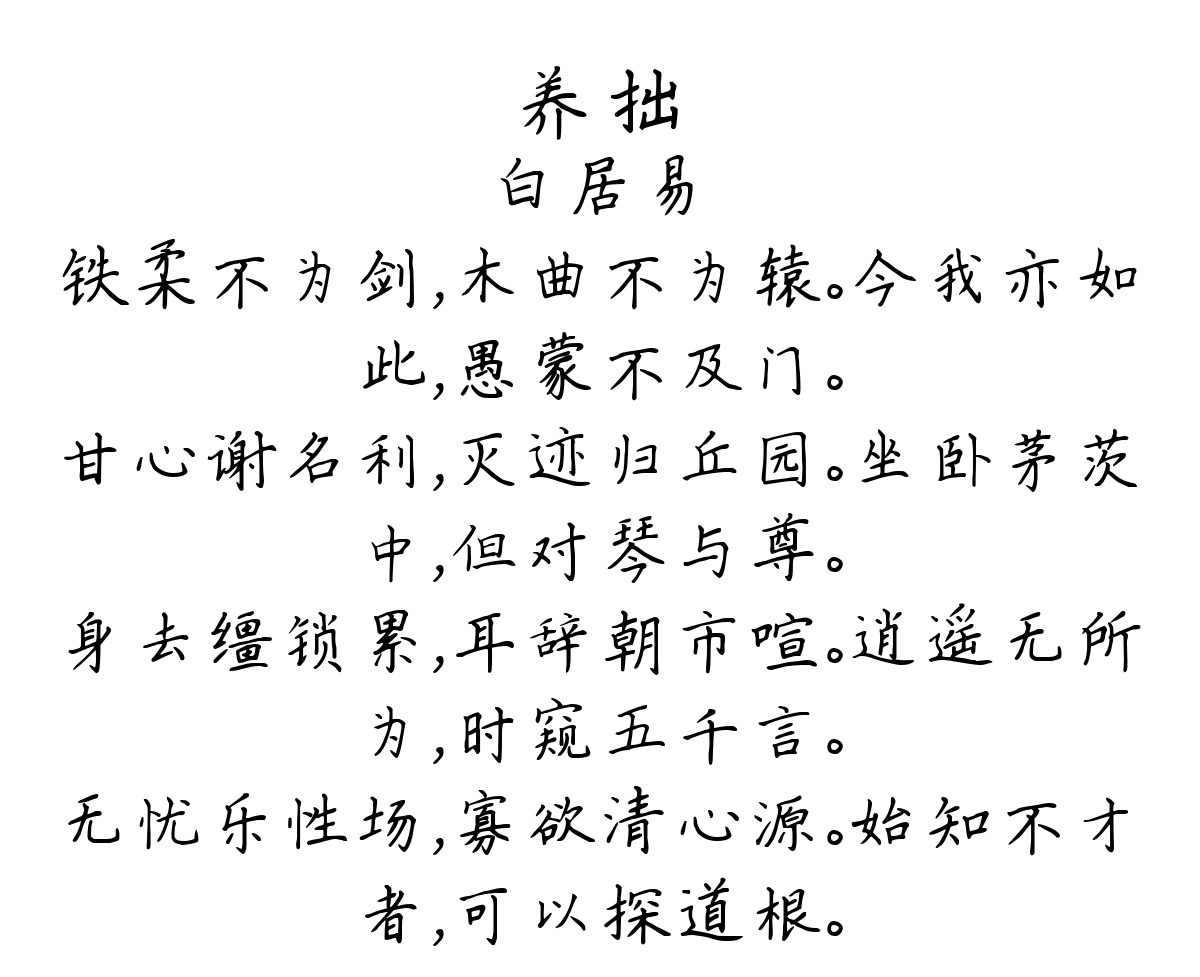 养拙
白居易
铁柔不为剑,木曲不为辕。今我亦如
此,愚蒙不及门。
甘心谢名利,灭迹归丘园。坐卧茅茨
中,但对琴与尊。
身去缰锁累,耳辞朝市喧。逍遥无所
为,时窥五千言。
无忧乐性场,寡欲清心源。始知不才
者,可以探道根。